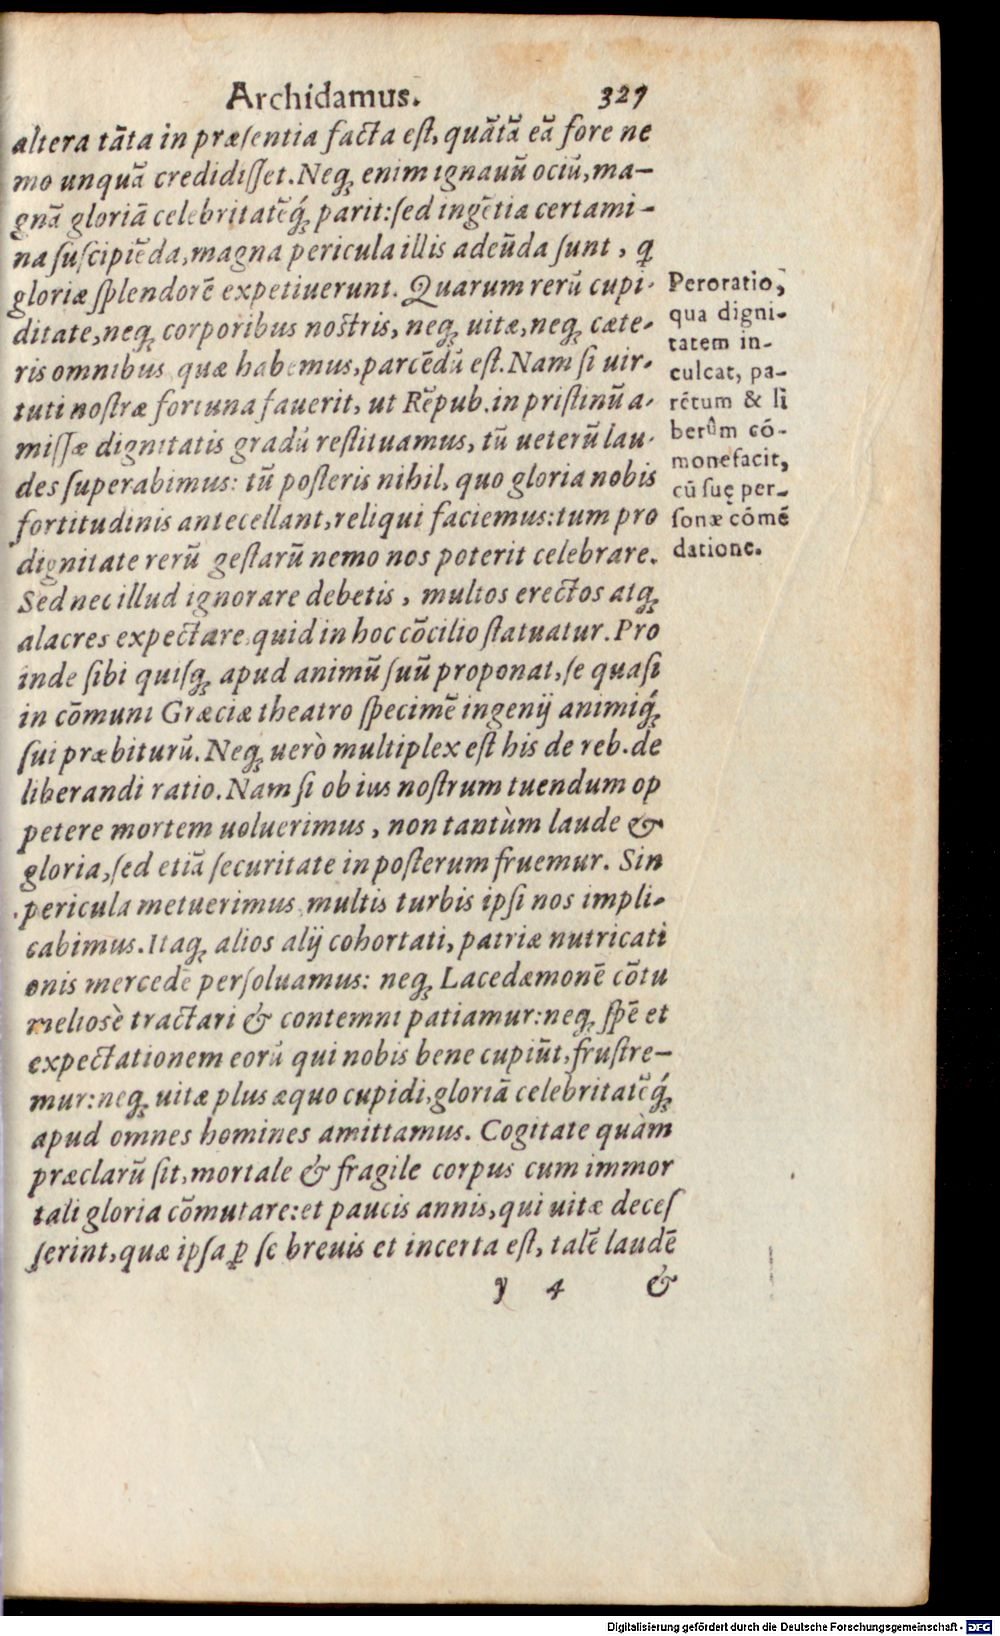 Archidamus. 327
altera tāta in præſentia facta eſt, quātā eā fore ne
mo unquā credidiſſet. Neq; enim ignauū ociū, ma-
gnā gloriā celebritatēq́; parit: ſed ingētia certami-
na ſuſcipiēda, magna pericula illis adeūda ſunt, q
gloriæ ſplendorē expetiuerunt. Quarum rerū cupi-
ditate, neq; corporibus nostris, neq; uitæ, neq; cæte-
ris omnibus quæ habemus, parcēdū eſt. Nam ſi uir-
tuti noſtræ fortuna fauerit, ut Rēpub. in priſtinū a-
miſſæ dignitatis gradū reſtituamus, tū ueterū lau-
des ſuperabimus: tū poſteris nihil, quo gloria nobis
fortitudinis antecellant, reliqui faciemus: tum pro
dignitate rerū geſtarū nemo nos poterit celebrare.
Sed nec illud ignorare debetis, multos erectos atq;
alacres expectare quid in hoc cōcilio ſtatuatur. Pro
inde ſibi quiſq; apud animū ſuū proponat, ſe quaſi
in cōmuni Græciæ theatro ſpecimē ingenij animiq́;
ſui præbiturū. Neq; uerò multiplex eſt his de reb. de
liberandi ratio. Nam ſi ob ius noſtrum tuendum op
petere mortem uoluerimus, non tantùm laude &
gloria, ſed etiā ſecuritate in poſterum fruemur. Sin
pericula metuerimus, multis turbis ipſi nos impli-
cabimus. Itaq; alios alij cohortati, patriæ nutricati
onis mercedē perſoluamus: neq; Lacedæmonē cōtu
meliosè tractari & contemni patiamur: neq; ſpē et
expectationem eorū qui nobis bene cupiūt, fruſtre-
mur: neq; uitæ plus æquo cupidi, gloriā celebritatēq́;
apud omnes homines amittamus. Cogitate quàm
præclarū ſit, mortale & fragile corpus cum immor
tali gloria cōmutare: et paucis annis, qui uitæ deceſ
ſerint, quæ ipſa ꝑ ſe breuis et incerta eſt, talē laudē
y 4 &
Peroratio,
qua digni-
tatem in-
culcat, pa-
rētum & li
berûm cō-
monefacit,
cū ſuę per-
ſonæ cōmē
datione.
Digitalisierung gefördert durch die Deutsche Forschungsgemeinschaft - DFG